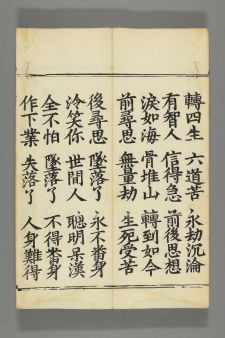 轉四生 六道苦 永劫沉淪
有智人 信得急 前後思想
淚如海 骨堆山 轉到如今
前尋思 無量劫 生死受苦
後尋思 墜落了 永不番身
冷笑你 世間人 聰明呆漢
全不怕 墜落了 不得番身
作下業 失落了 人身難得